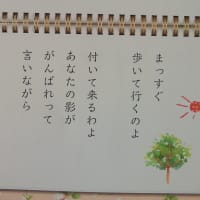 まっすぐ
歩いて行くのよ
付いて来るわよ
あなたの影が
がんばれって
言いながら